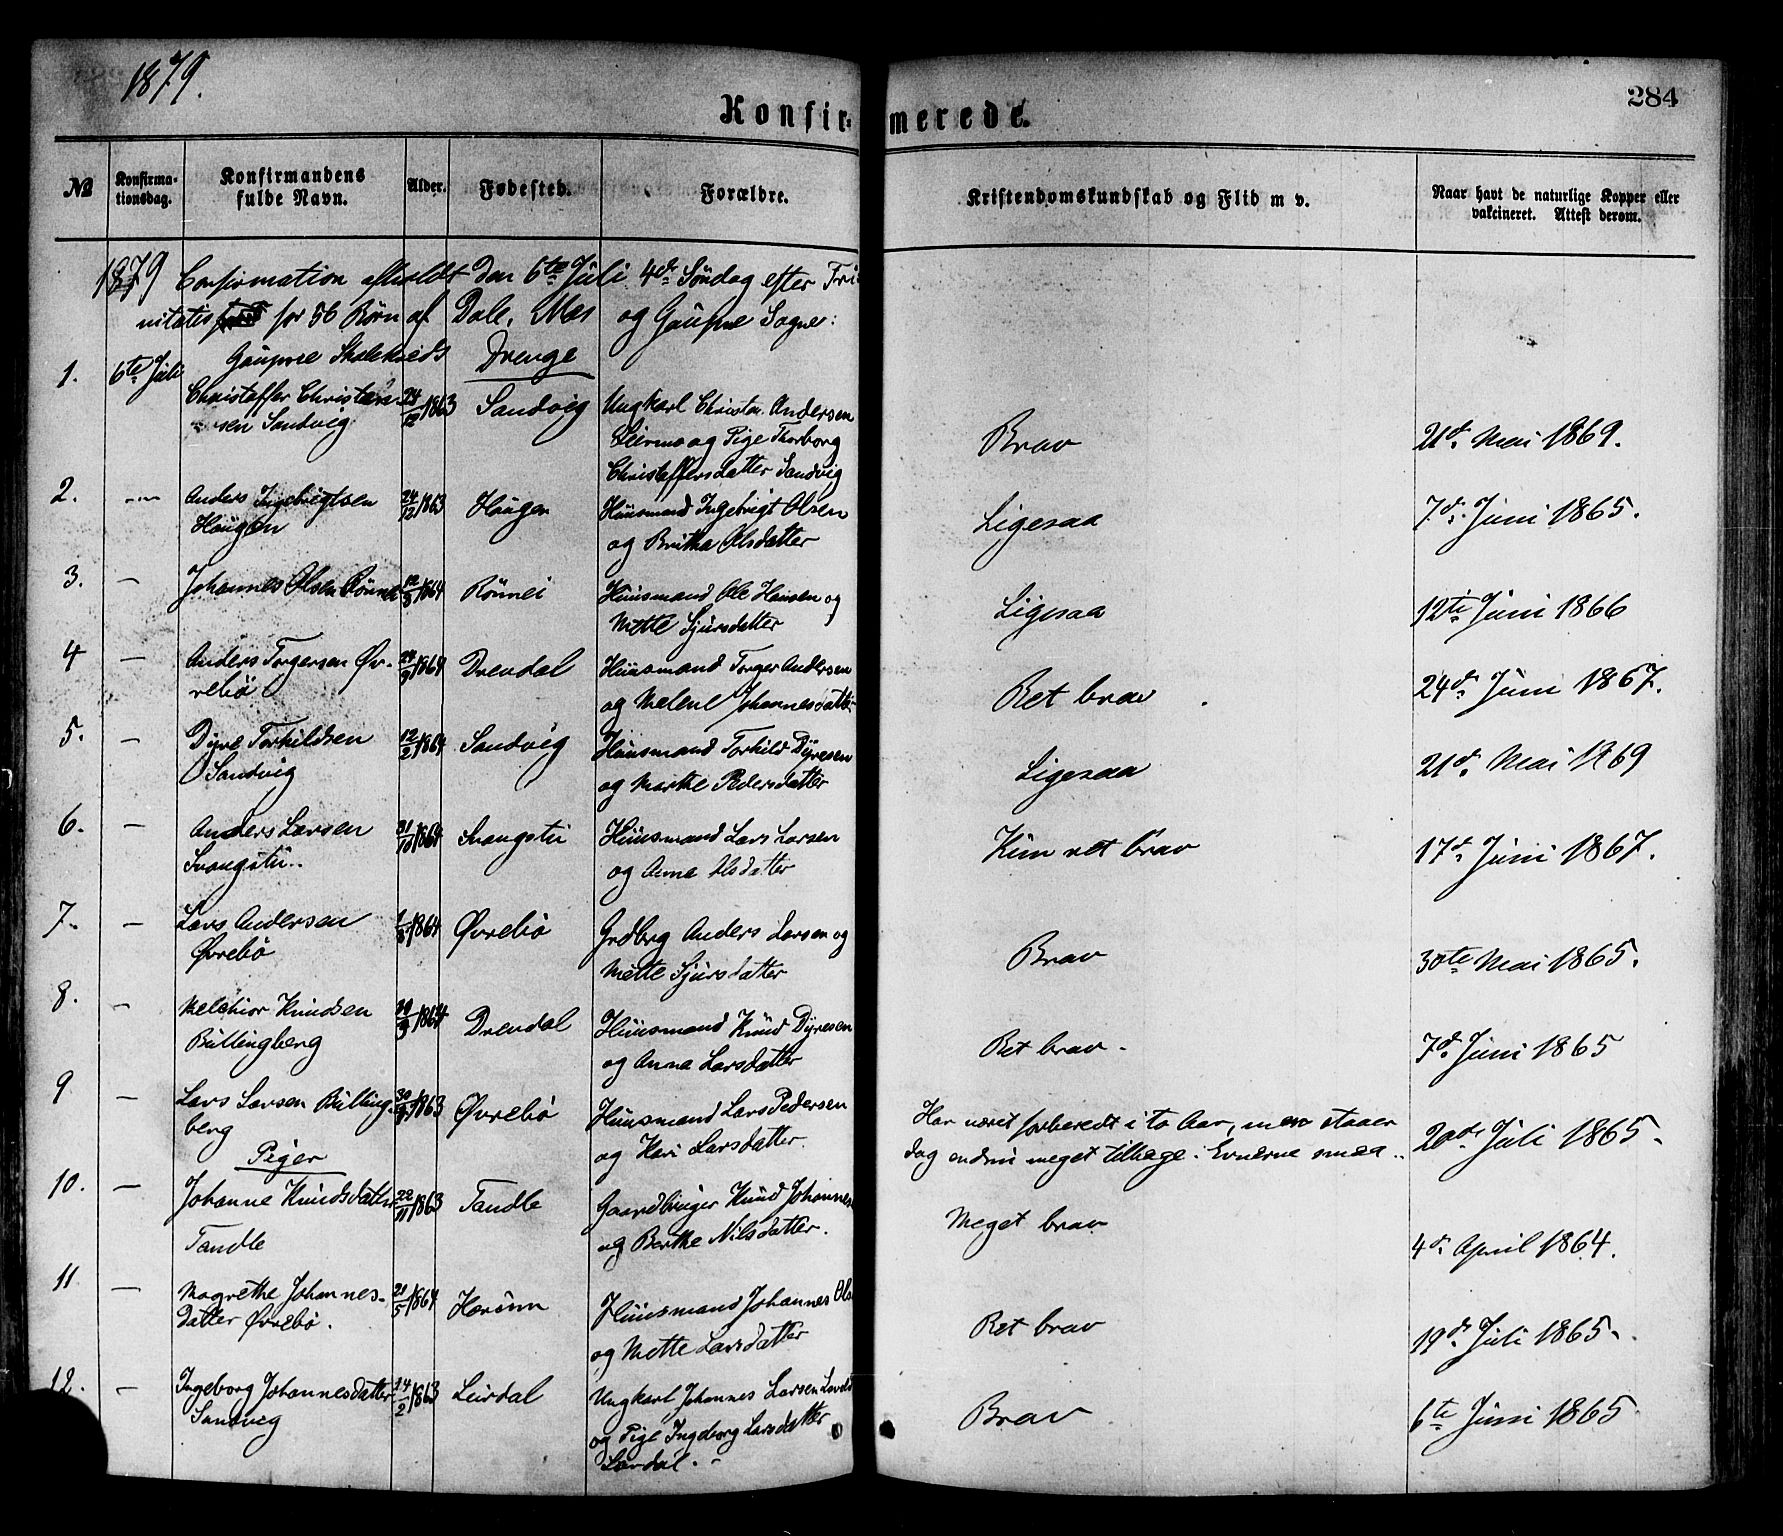 1879.
284
Konfirmerede.
No
Konfirmationsdag.
Konfirmandens fulde Navn.
Alder.
Fødested.
Forældre.
Kristendomskundskab og Flid m v.
Naar havt de naturlige Kopper eller vakcineret. Attest derom.
1879 Confirmation afholdt den 6te Juli 4de Søndag efter Tri-
nitatis for 56 Børn af Dale, Mes og Gaupne Sogne:
Gaupne Drenge
1. 6te Juli Christoffer Christen- 24/12 1863 Sandvig Ungkarl Christen Andersen
sen Sandvig og Pige Thorborg Brav 21de Mai 1869.
Christoffersdatter Sandvig
2. Anders Ingebrigtsen 24/12 1863 Haugen Huusmand Ingebrigt Olsen Ligesaa 7de Juni 1865.
Haugen og Britha Olsdatter
3. — Johannes Olsen Rönnei 12/3 1864 Rönnei Huusmand Ole Hansen og Ligesaa 12te Juni 1866
Mette Sjursdatter
4 — Anders Torgersen Øv- 1864 Drevdal Huusmand Torger Andersen Ret brav 24de Juni 1867.
rebö og Malene Johannesdatter
5. — Dyre Torkildsen 12/2 1864 Sandvig Huusmand Torkild Dyresen Ligesaa 21de Mai 1869
Sandvig og Marthe Pedersdatter
6. — Anders Larsen 31/10 1864 Svangstu Huusmand Lars Larsen Kun ret brav 17de Juni 1867.
Svangstu og Anna Olsdatter
7. — Lars Andersen 1864 Øvrebö Grdbrg Anders Larsen og Brav 30te Mai 1865.
Øvrebö Mette Sjursdatter
8. — Melchior Knudsen 1864 Drevdal Huusmand Knud Dyresen Ret brav. 7de Juni 1865
Bullingberg og Anna Larsdatter
9 — Lars Larsen Bulling- 1863 Øvrebö Huusmand Lars Pedersen Har været forberedt i to Aar, men staaer 20de Juli 1865.
berg og Kari Larsdatter. dog endnu meget tilbage. Evnerne smaa.
Piger
10. — Johanne Knudsdatter 22/11 1863 Tandle Gaardbruger Knud Johannes Meget brav 4de April 1864.
Tandle og Berthe Nilsdatter.
11 — Magrethe Johannes- 21/5 1864 Huusmand Johannes Ols Ret brav 19de Juli 1865.
datter Øvrebö. og Mette Larsdatter
12. — Ingeborg Johannesdatter 14/2 1863 Leirdal Ungkarl Johannes Larsen Brav 6te Juni 1865
Sandvig og Pige Ingeborg Larsdatter
Lerdal.